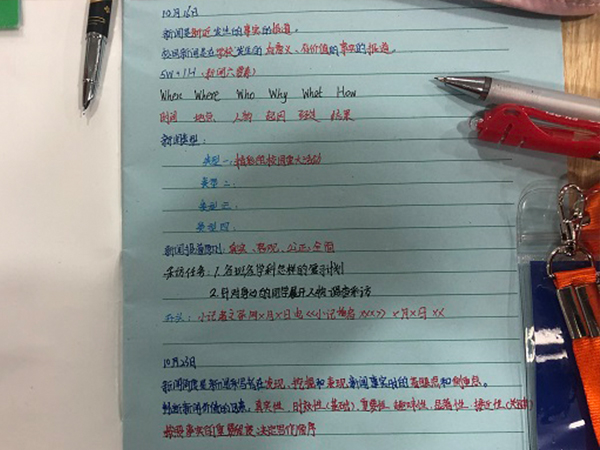 10月16日
新闻是新近发生的事实的报道。
校园新闻是在学校发生的有意义、有价值的事实的报道。
5W+1H(新闻六要素)
When Where Who Why What How
时间 地点 人物 起因 经过 结果
新闻类型:
类型一:校园重大活动
类型二:
类型三:
类型四:
新闻报道原则:真实、客观、公正、全面
采访任务:1.各班各学科怎样的学习计划
2.针对身边的同学展开采访
小记者文章网x月x日电《小记者名 xxx》 x月x日 xx
10月23日
新闻角度是新闻写者在发现、挖掘和表现新闻事实时的着眼点和侧重点。
判断新闻价值的因素:真实性、时效性(基础)、重要性、趣味性、显著性、接近性
按照事实的重要程度,决定写作顺序